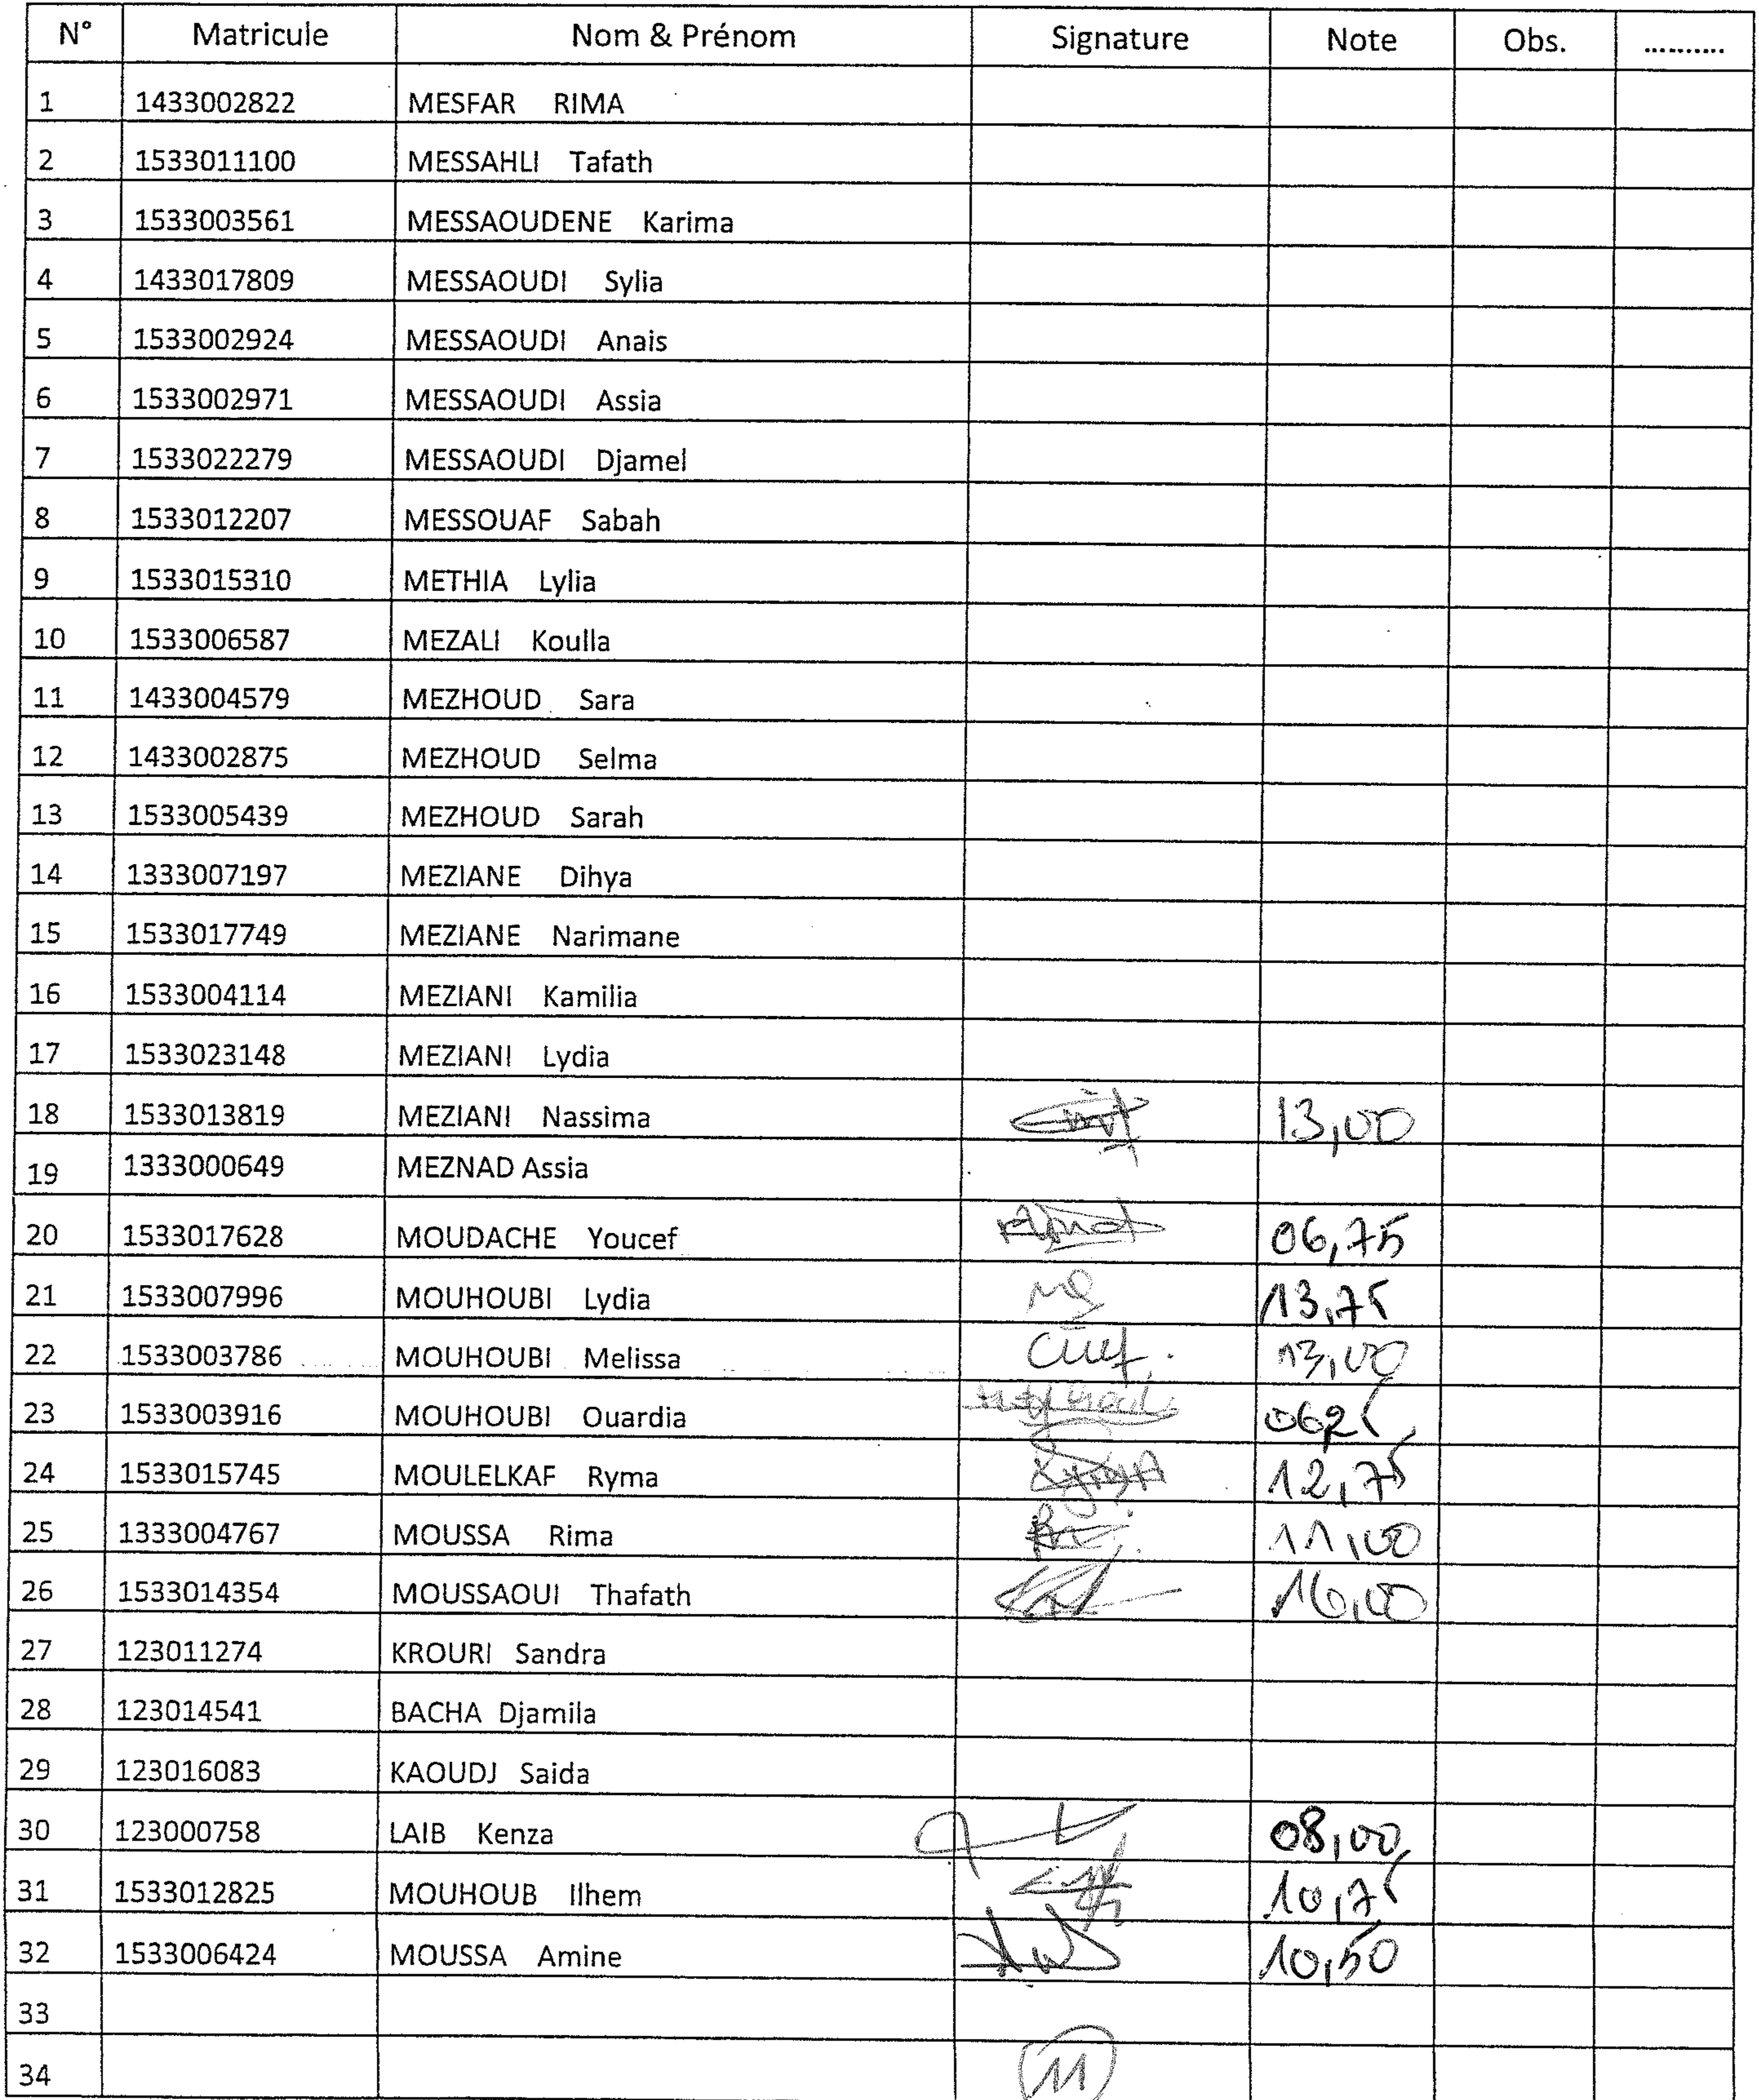 N° Matricule Nom & Prénom Signature Note Obs. ..........
1 1433002822 MESFAR RIMA
2 1533011100 MESSAHLI Tafath
3 1533003561 MESSAOUDENE Karima
4 1433017809 MESSAOUDI Sylia
5 1533002924 MESSAOUDI Anais
6 1533002971 MESSAOUDI Assia
7 1533022279 MESSAOUDI Djamel
8 1533012207 MESSOUAF Sabah
9 1533015310 METHIA Lylia
10 1533006587 MEZALI Koulla
11 1433004579 MEZHOUD Sara
12 1433002875 MEZHOUD Selma
13 1533005439 MEZHOUD Sarah
14 1333007197 MEZIANE Dihya
15 1533017749 MEZIANE Narimane
16 1533004114 MEZIANI Kamilia
17 1533023148 MEZIANI Lydia
18 1533013819 MEZIANI Nassima 13,00
19 1333000649 MEZNAD Assia
20 1533017628 MOUDACHE Youcef 06,75
21 1533007996 MOUHOUBI Lydia 13,75
22 1533003786 MOUHOUBI Melissa 13,00
23 1533003916 MOUHOUBI Ouardia 06,25
24 1533015745 MOULELKAF Ryma 12,75
25 1333004767 MOUSSA Rima 11,00
26 1533014354 MOUSSAOUI Thafath 16,00
27 123011274 KROURI Sandra
28 123014541 BACHA Djamila
29 123016083 KAOUDJ Saida
30 123000758 LAIB Kenza 08,00
31 1533012825 MOUHOUB Ilhem 10,75
32 1533006424 MOUSSA Amine 10,50
33
34 11